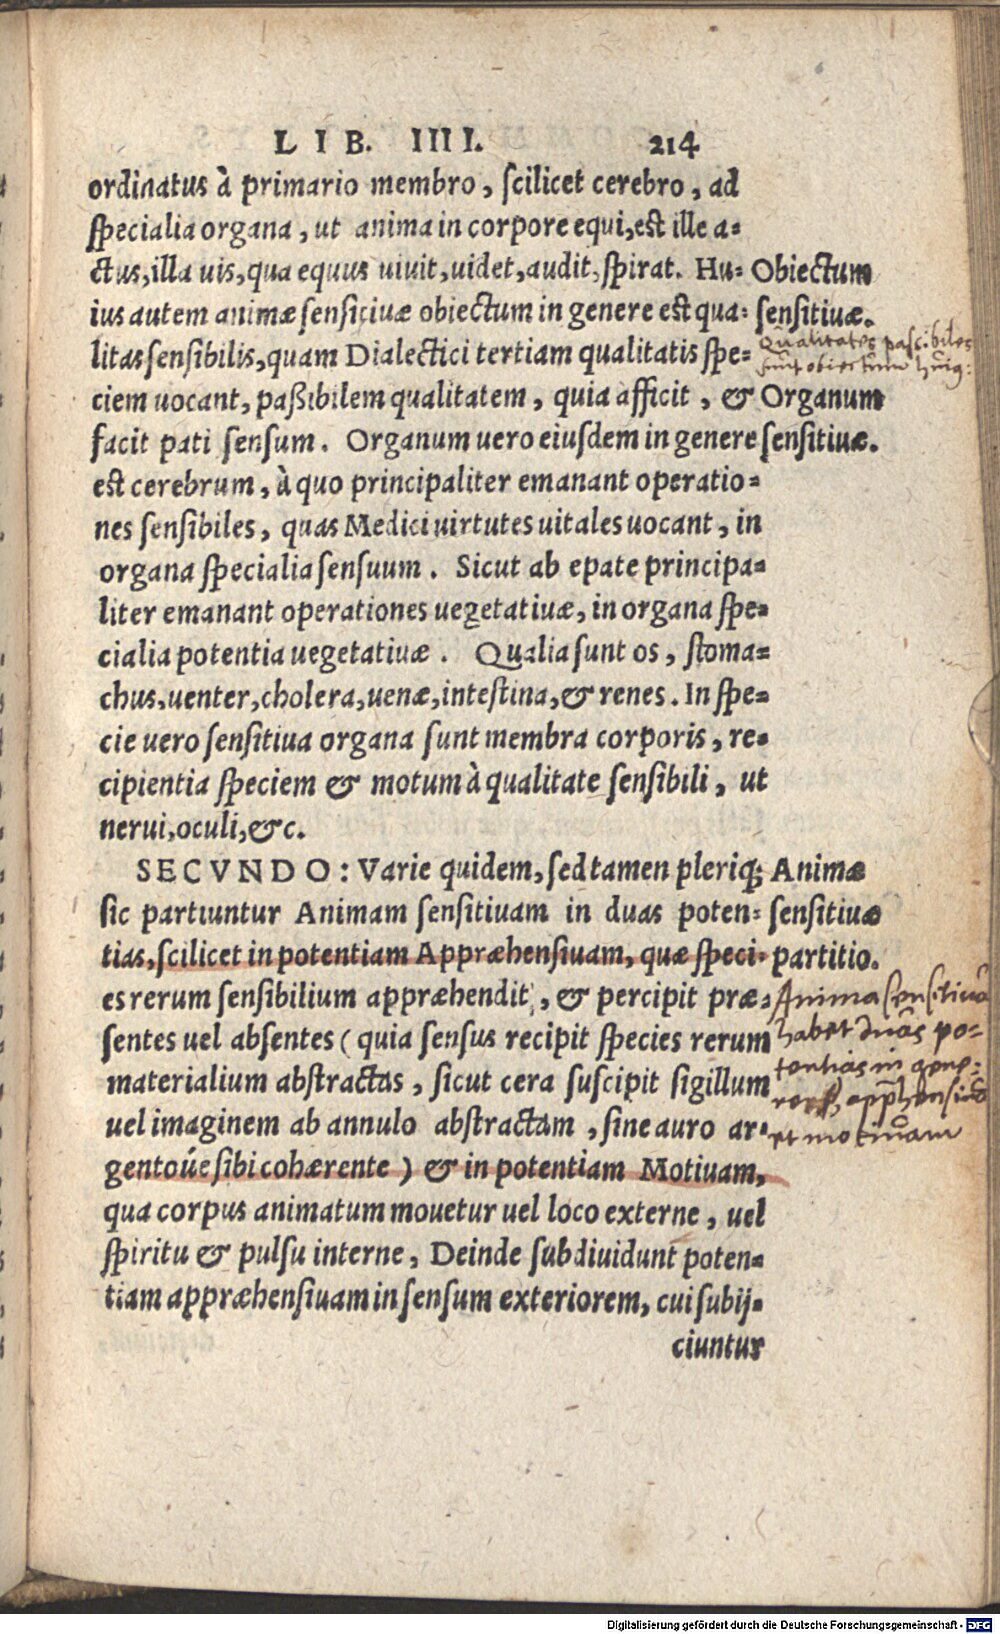 LIB. IIII. 214
ordinatus à primario membro, ſcilicet cerebro, ad
ſpecialia organa, ut anima in corpore equi, est ille a-
ctus, illa uis, qua equus uiuit, uidet, audit, ſpirat. Hu-
ius autem animæ ſenſitiuæ obiectum in genere est qua-
litas ſenſibilis, quam Dialectici tertiam qualitatis ſpe-
ciem uocant, paßibilem qualitatem, quia afficit, &
facit pati ſenſum. Organum uero eiuſdem in genere
est cerebrum, à quo principaliter emanant operatio-
nes ſenſibiles, quas Medici uirtutes uitales uocant, in
organa ſpecialia ſenſuum. Sicut ab epate principa-
liter emanant operationes uegetatiuæ, in organa ſpe-
cialia potentia uegetatiuæ. Qualia ſunt os, ſtoma-
chus, uenter, cholera, uenæ, inteſtina, & renes. In ſpe-
cie uero ſenſitiua organa ſunt membra corporis, re-
cipientia ſpeciem & motum à qualitate ſenſibili, ut
nerui, oculi, &c.
SECVNDO: Varie quidem, ſed tamen pleriq;
ſic partiuntur Animam ſenſitiuam in duas poten-
tias, ſcilicet in potentiam Appræhenſiuam, quæ ſpeci-
es rerum ſenſibilium appræhendit, & percipit præ-
ſentes uel abſentes (quia ſenſus recipit ſpecies rerum
materialium abſtractas, ſicut cera ſuſcipit ſigillum
uel imaginem ab annulo abſtractam, ſine auro ar-
gentoúe ſibi cohærente) & in potentiam Motiuam,
qua corpus animatum mouetur uel loco externe, uel
ſpiritu & pulſu interne, Deinde ſubdiuidunt poten-
tiam appræhenſiuam in ſenſum exteriorem, cui ſubij-
ciuntur
Obiectum
ſenſitiuæ.
Qualitates paſsibiles
ſunt obiectum huiq:
Organum
ſenſitiuæ.
Animæ
ſenſitiuæ
partitio.
Anima ſenſitiua
habet duas po-
tentias in gene-
et motiuam
Digitalisierung gefördert durch die Deutsche Forschungsgemeinschaft - DFG